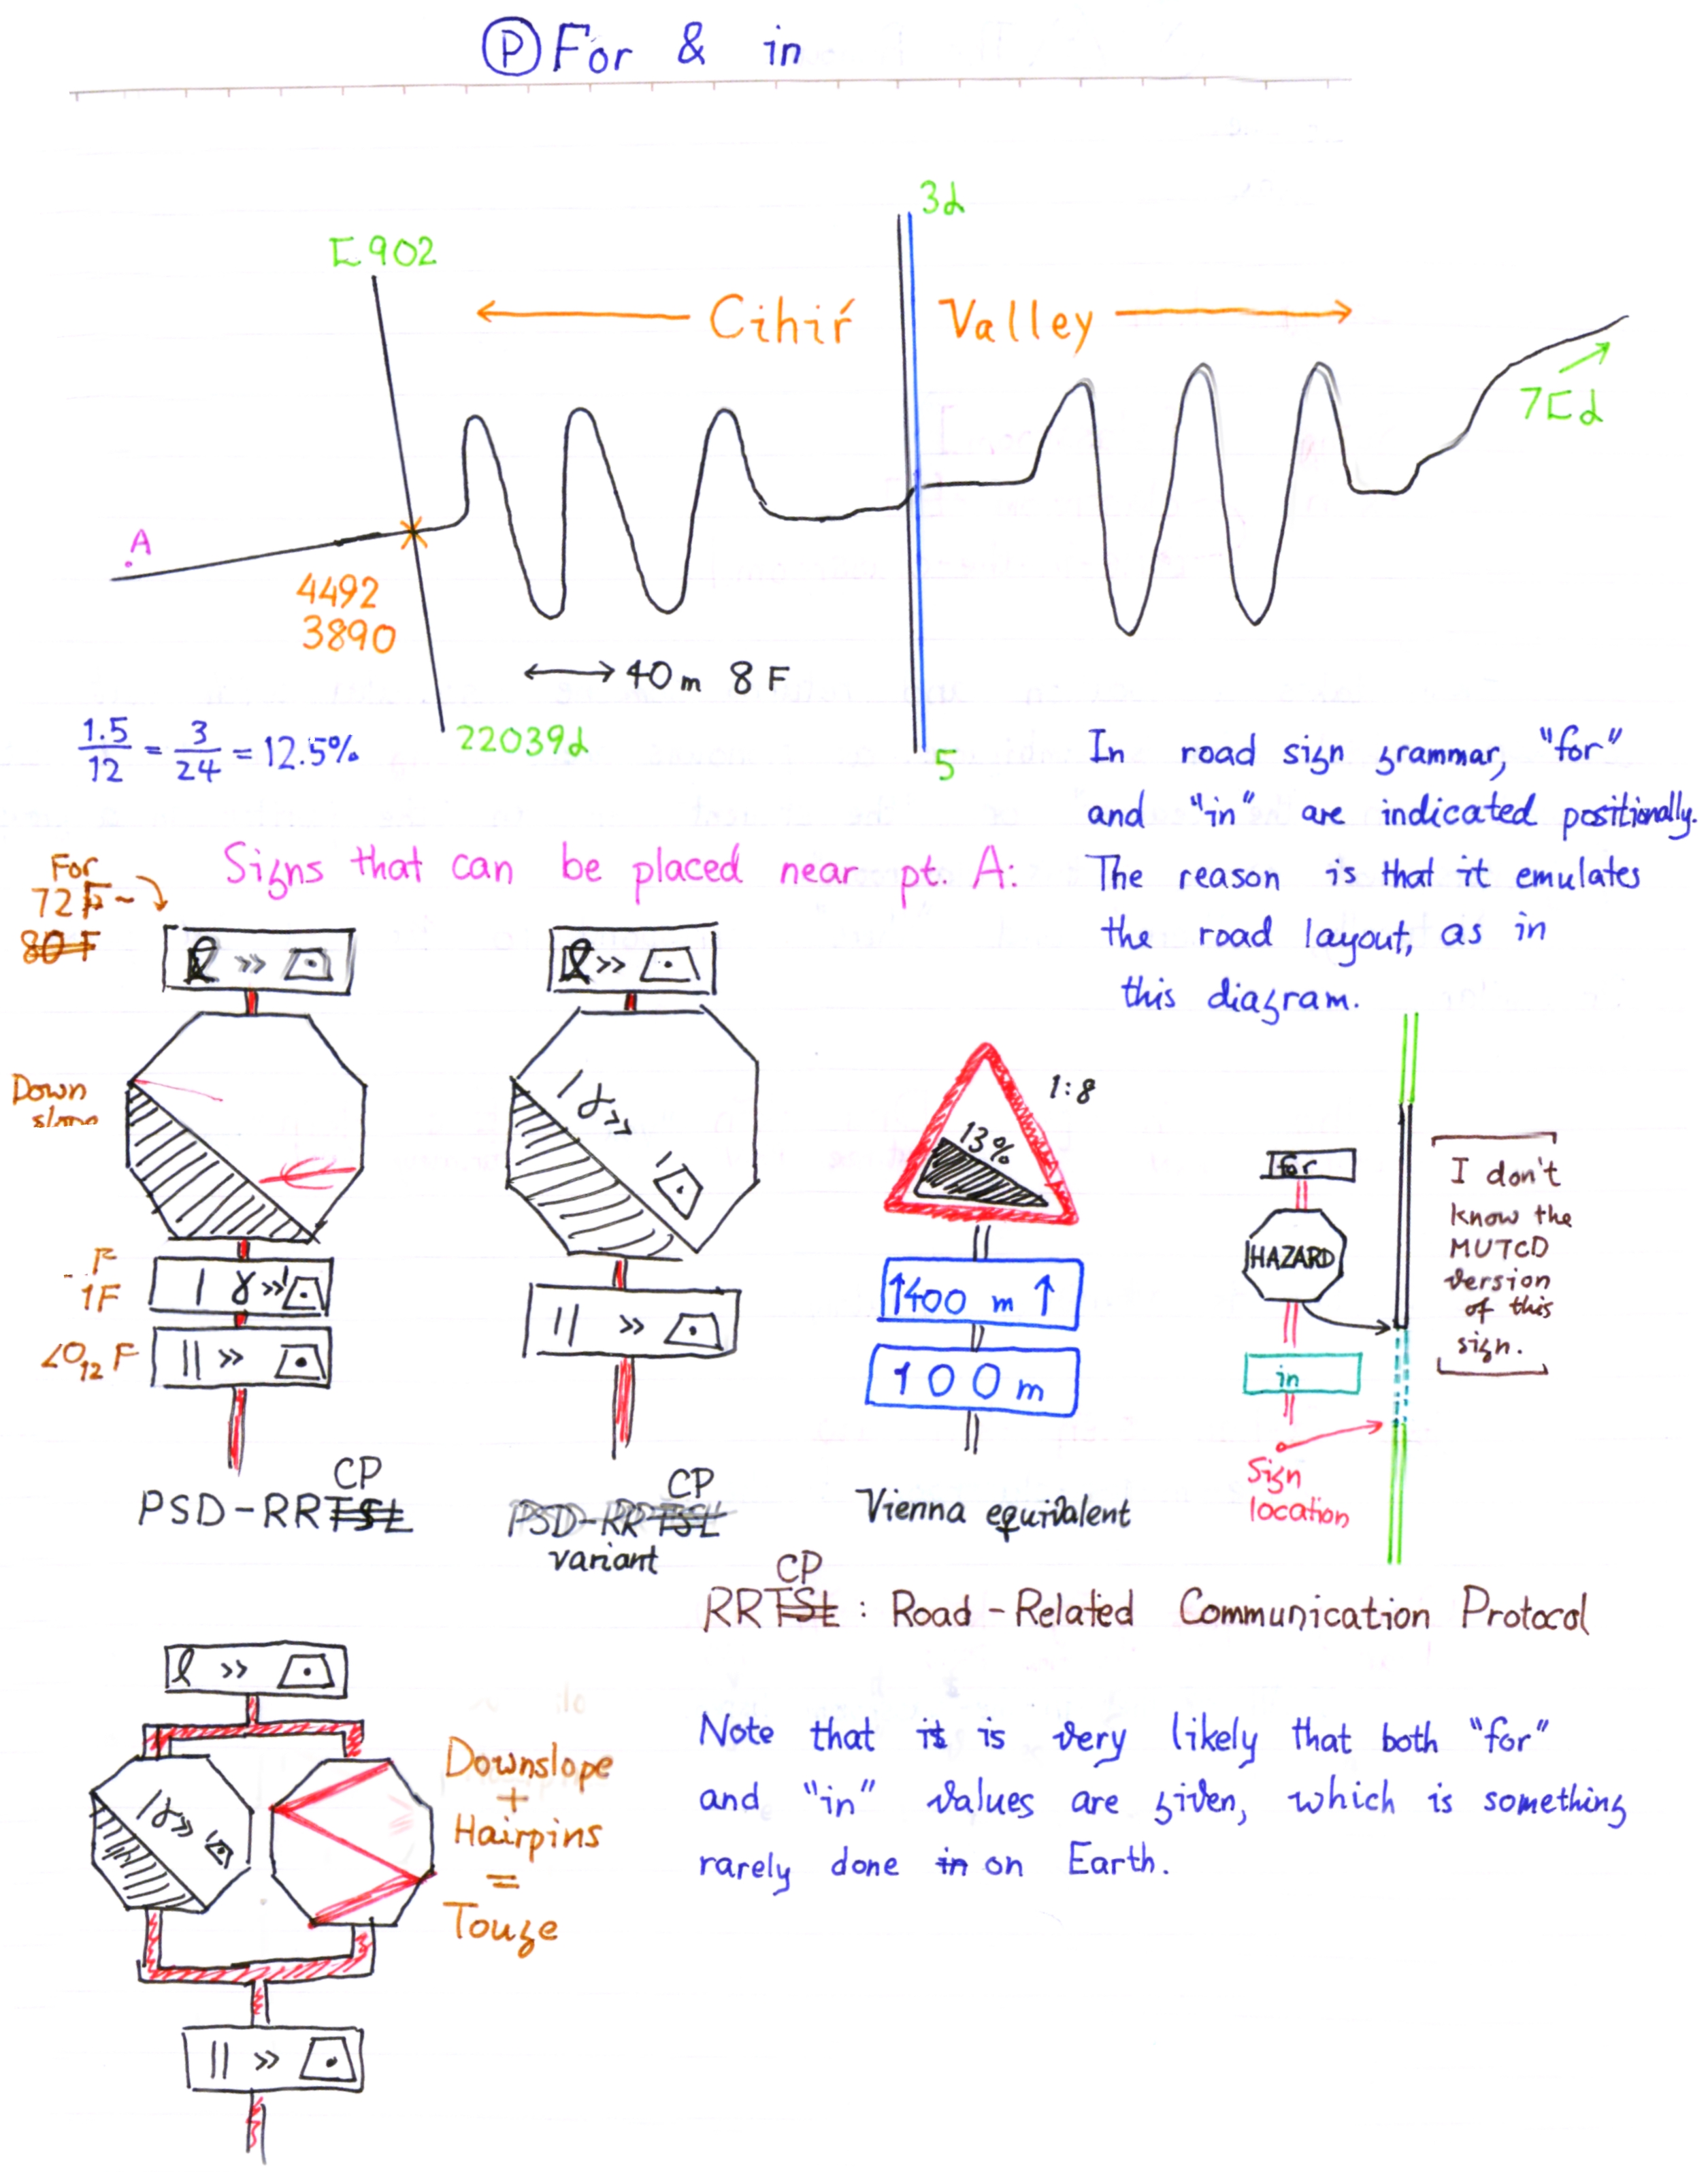 P For & in
3d
E902
Cihiŕ Valley
7Ed
A
4492
3890
40m 8F
22039d
5
1.5/12 = 3/24 = 12.5%
In road sign grammar, "for"
and "in" are indicated positionally.
The reason is that it emulates
the road layout, as in
this diagram.
Signs that can be placed near pt. A:
For
72F~
80F
Down
slope
1:8
13%
↑400 m ↑
100m
1F
20₁₂ F
for
HAZARD
in
Sign
location
I don't
know the
MUTCD
version
of this
sign.
CP
PSD-RRTSL
CP
PSD-RRTSL
variant
Vienna equivalent
CP
RRTSL : Road-Related Communication Protocol
Downslope
+
Hairpins
=
Touge
Note that it is very likely that both "for"
and "in" values are given, which is something
rarely done in on Earth.